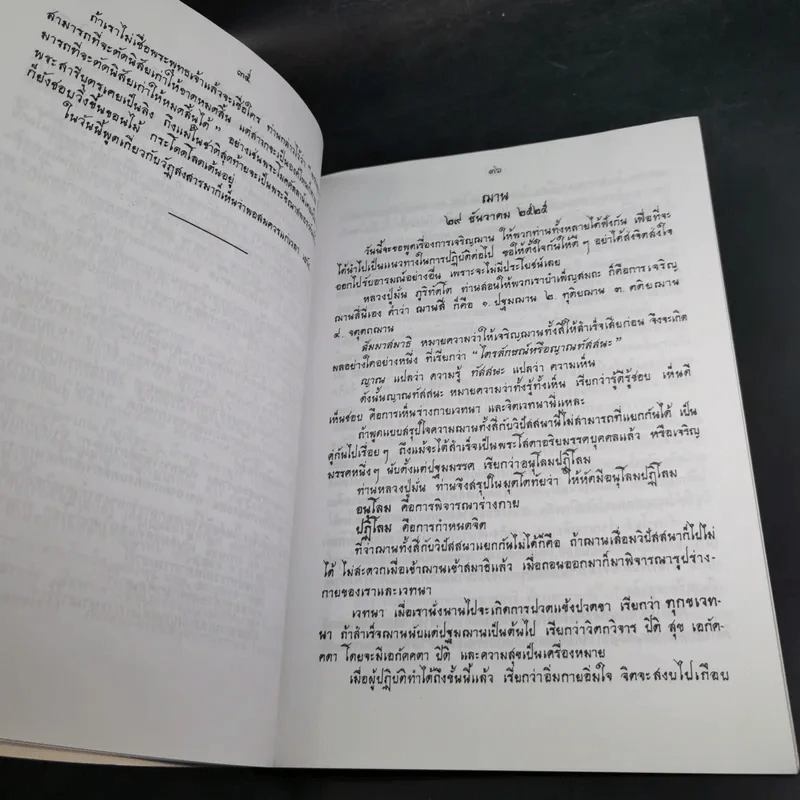 ๓๕
ถ้าเราไม่เชื่อพระพุทธเจ้าแล้วจะเชื่อใคร ท่านกล่าวไว้ว่า
สามารถที่จะตัดนิสัยเก่าให้ขาดหมดสิ้น แต่สาวกจะเป็นองค์ไหน
มารถที่จะตัดนิสัยเก่าให้หมดสิ้นได้" อย่างเช่นพระโมคคัลลาน
พระสารีบุตรเคยเป็นลิง ถึงแม้ในชาติสุดท้ายจะเป็นพระ
ก็ยังชอบวิ่งขึ้นขอนไม้ กระโดดโลดเต้นอยู่
ในวันนี้พูดเกี่ยวกับวัฏสงสารมาก็เห็นว่าพอสมควรแก่เวลา
๓๖
ฌาน
๒๙ ธันวาคม ๒๕๒๕
วันนี้จะขอพูดเรื่องการเจริญฌาน ให้พวกท่านทั้งหลายได้ฟังกัน เพื่อที่จะ
ได้นำไปเป็นแนวทางในการปฏิบัติต่อไป ขอให้ตั้งใจกันให้ดีๆ อย่าได้ส่งจิตส่งใจ
ออกไปรับอารมณ์อย่างอื่น เพราะจะไม่มีประโยชน์เลย
หลวงปู่มั่น ภูริทัตโต ท่านสอนให้พวกเราบำเพ็ญสมถะ ก็คือการเจริญ
ฌานสี่นี่เอง คำว่า ฌานสี่ ก็คือ ๑. ปฐมฌาน ๒. ทุติยฌาน ๓. ตติยฌาน
๔. จตุตถฌาน
สัมมาสมาธิ หมายความว่าให้เจริญฌานทั้งสี่ให้สำเร็จเสียก่อน จึงจะเกิด
ผลอย่างใดอย่างหนึ่ง ที่เรียกว่า "ไตรลักษณ์หรือญาณทัสสนะ"
ญาณ แปลว่า ความรู้ ทัสสนะ แปลว่า ความเห็น
ดังนั้นญาณทัสสนะ หมายความว่าทั้งรู้ทั้งเห็น เรียกว่ารู้ดีรู้ชอบ เห็นดี
เห็นชอบ คือการเห็นร่างกายเวทนา และจิตเวทนานี่แหละ
ถ้าพูดแบบสรุปใจความฌานทั้งสี่กับวิปัสสนานี้ไม่สามารถที่แยกกันได้ เป็น
คู่กันไปเรื่อยๆ ถึงแม้จะได้สำเร็จเป็นพระโสดาอริยมรรคบุคคลแล้ว หรือเจริญ
มรรคหนึ่งๆ นับตั้งแต่ปฐมมรรค เรียกว่าอนุโลมปฏิโลม
ท่านหลวงปู่มั่น ท่านจึงสรุปในมุตโตทัยว่า ให้หัดมีอนุโลมปฏิโลม
อนุโลม คือการพิจารณาร่างกาย
ปฏิโลม คือการกำหนดจิต
ที่ว่าฌานทั้งสี่กับวิปัสสนาแยกกันไม่ได้ก็คือ ถ้าฌานเสื่อมวิปัสสนาก็ไปไม่
ได้ ไม่สะดวกเมื่อเข้าฌานเข้าสมาธิแล้ว เมื่อถอนออกมาก็มาพิจารณารูปร่าง-
กายของเราและเวทนา
เวทนา เมื่อเรานั่งนานไปจะเกิดการปวดแข้งปวดขา เรียกว่า ทุกขเวท-
นา ถ้าสำเร็จฌานนับแต่ปฐมฌานเป็นต้นไป เรียกว่าวิตกวิจาร ปิติ สุข เอกัค-
คตา โดยจะมีเอกัคคตา ปิติ และความสุขเป็นเครื่องหมาย
เมื่อผู้ปฏิบัติทำได้ถึงขั้นนี้แล้ว เรียกว่าอิ่มกายอิ่มใจ จิตจะสงบไปเกือบ